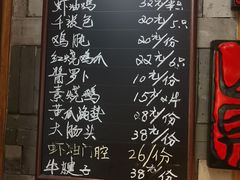 虾油鸡 32元/只
千张包 20元/5只
鸡腿 20元/份
红烧鸡爪 22元/6只
酱萝卜 10元/份
素烧鹅 15元/2块
黄瓜海蜇 38元/份
大肠头 38元/份
虾油门腔 26/份
牛腱子 38/份